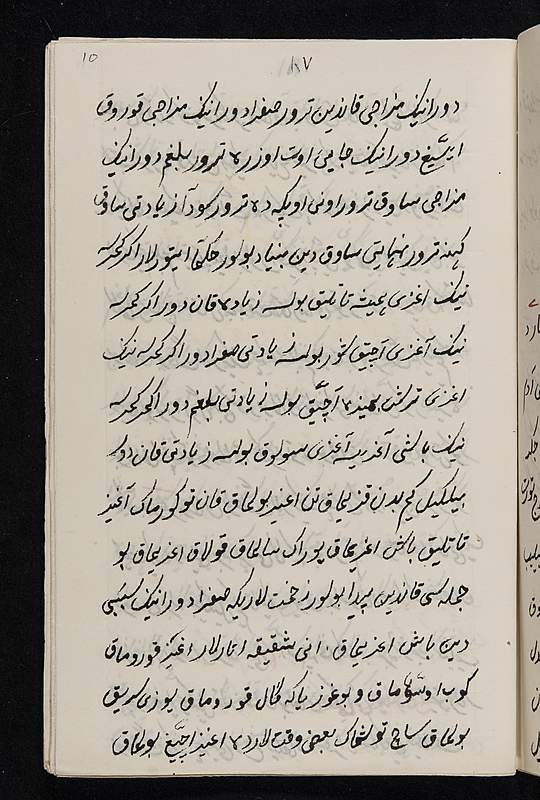 10
۱۷
دورانیک مزاجی قاندین ترور صفرا دورانیک مزاجی قوروق
ایسّیغ دورانیک جایی اوت اوزره ترور بلغم دورانیک
مزاجی ساوق ترور اونی اوپکه ده ترور سودا زیادتی ساوق
ترور نهایتی ساوق دین بنیاد بولور حکما ایتورلار اکر کمرسه
نیک اغزی همیشه تاتلیق بولسه زیاده قان دور اکر کمرسه
نیک آغزی آچیق بولسه زیادتی صفرا دور اکر کمرسه نیک
اغزی ترش بولسه زیادتی بلغم دور اکر کمرسه
نیک باشی آغریسه آغزی سولوق بولسه زیادتی قان دور
بیلکیل کیم بدن قزیماق تن اغیر بولماق قان توکورماک آغیز
تاتلیق باش اغریماق یوراک سالماق قولاق اغریماق بو
جمله سی قاندین پیدا بولور زحمت لاریکه صفرا دورانیک سببی
دین باش اغریماق انی شقیقه اتارلار اغیز قوروماق
کوب اوشوماق و بوغوز یاکه قوروماق یوزی سریق
بولماق ساچ توشماک بعضی وقت لارده اغیز اچیّغ بولماق